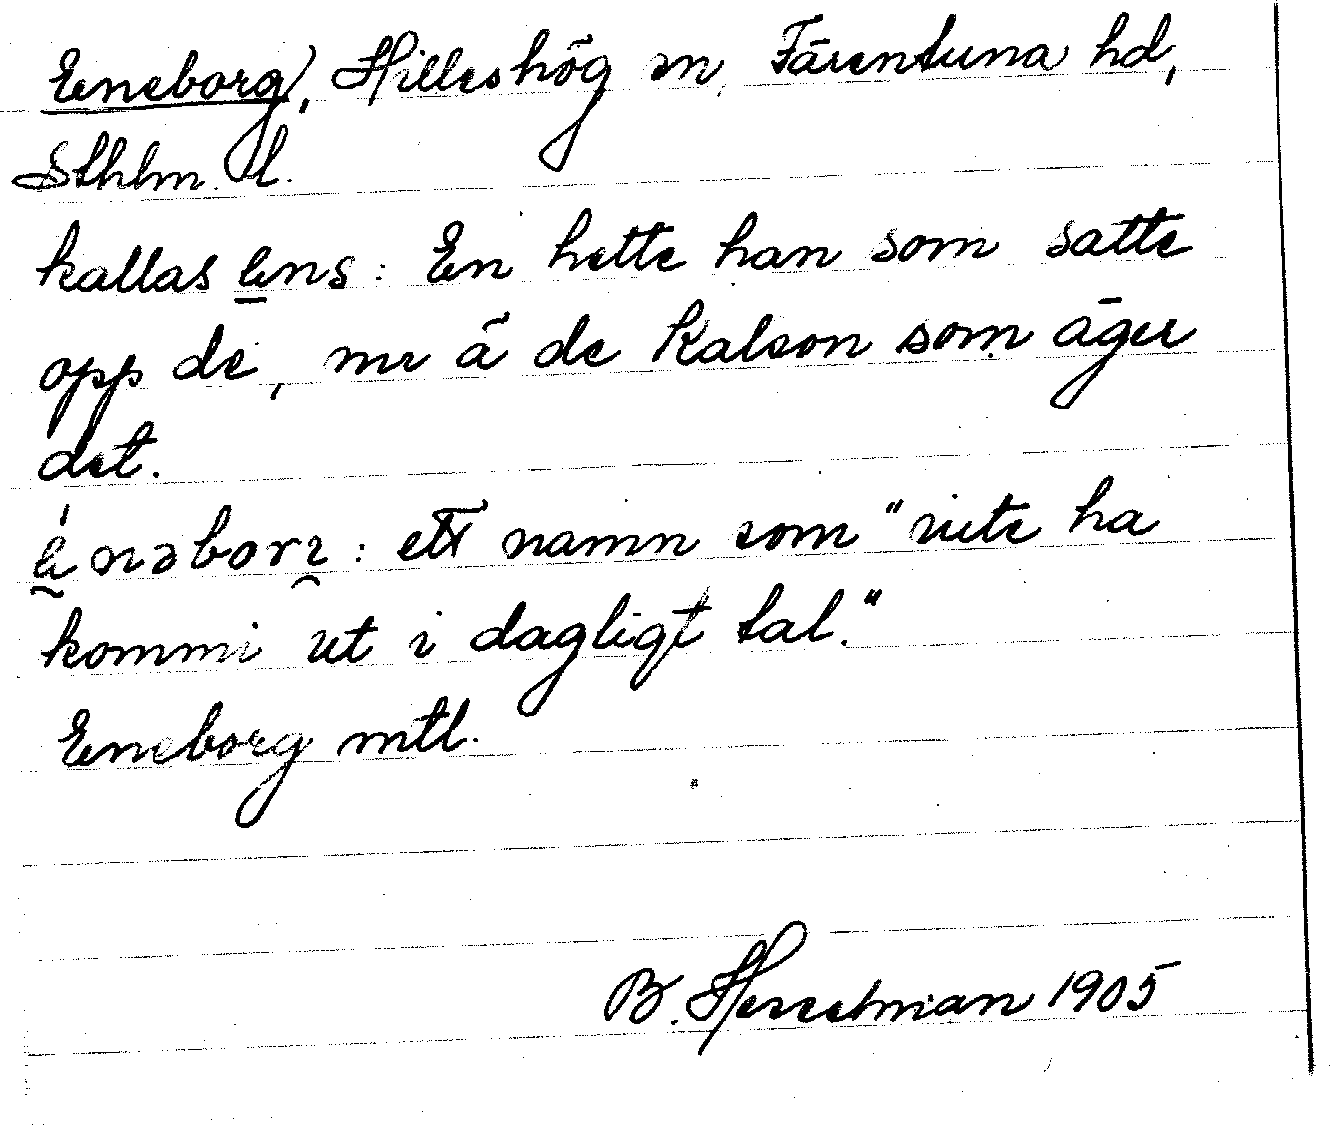 Eneborg, Hilleshög sn, Färentuna hd,
Sthlm. l.
kallas ens: En hette han som satte
opp de, nu ä de Kalson som äger
det.
enəborı: ett namn som "inte ha
kommi ut i dagligt tal."
Eneborg mtl.
B. Hesselman 1905